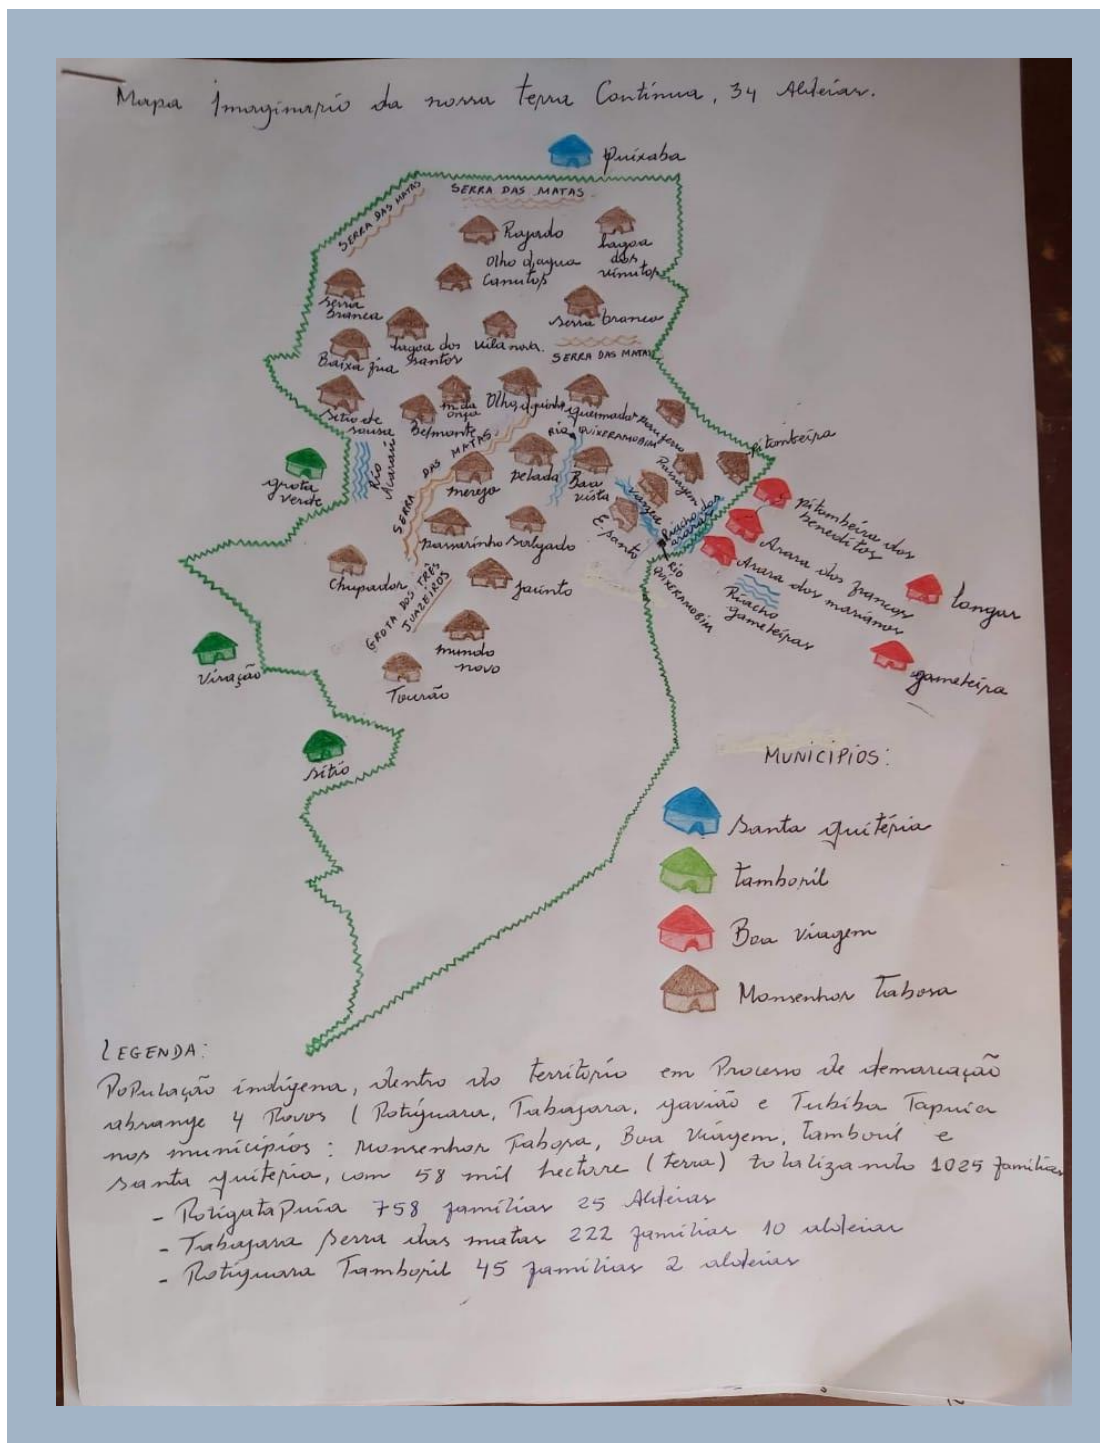 Mapa Imaginario da nossa terra Contínua, 34 Aldeias.
Quixaba
SERRA DAS MATAS
SERRA DAS MATAS
Rajado
Lagoa
dos
Vinutos
Olho d'agua
Canutos
Serra
Branca
Serra branca
Lagoa dos
Santos
Vila nova.
SERRA DAS MATAS
Baixa fria
Sitio de
Sousa
Belmonte
M. da
onça
Olho d'aguinha
queimadas
pau ferro
RIO QUIXERAMOBIM
pitombeira
grota
verde
RIO
Acaraú
SERRA DAS MATAS
merejo
pelada
Boa
vista
Passagem
Varzea
E. santo
Riacho das
araras
pitombeira dos
beneditos
Arara dos francos
Arara dos marianos
passarinho
Salgado
Chupador
GROTA DOS TRÊS
JUAZEIROS
Jacinto
RIO
QUIXERAMOBIM
Riacho
gameleiras
Longar
Viração
mundo
novo
gameleira
Tourão
Sítio
MUNICÍPIOS:
Santa quitéria
tamboril
Boa viagem
Monsenhor Tabosa
LEGENDA:
População indígena, dentro do território em Processo de demarcação
abrange 4 Povos (Potiguara, Tabajara, gavião e Tubiba Tapuia
nos municípios: Monsenhor Tabosa, Boa Viagem, Tamboril e
Santa quitéria, com 58 mil hectare (terra) totalizando 1025 famílias
- Potigatapuia 758 famílias 25 Aldeias
- Tabajara Serra das matas 222 famílias 10 aldeias
- Potiguara Tamboril 45 famílias 2 aldeias